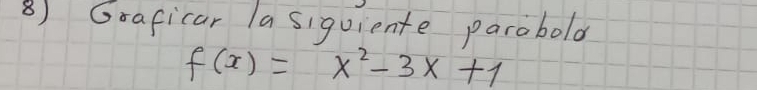 8) Graficar la siguiente parábola
f(x) = x²-3x +1